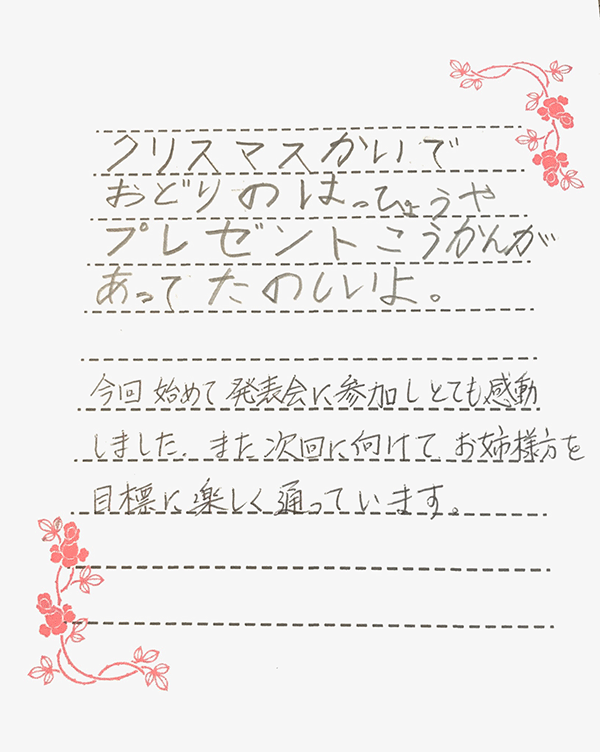 クリスマスかいで
おどりのはっぴょうや
プレゼントこうかんが
あってたのしいよ。
今回始めて発表会に参加しとても感動
しました。また次回に向けてお姉様方を
目標に楽しく通っています。